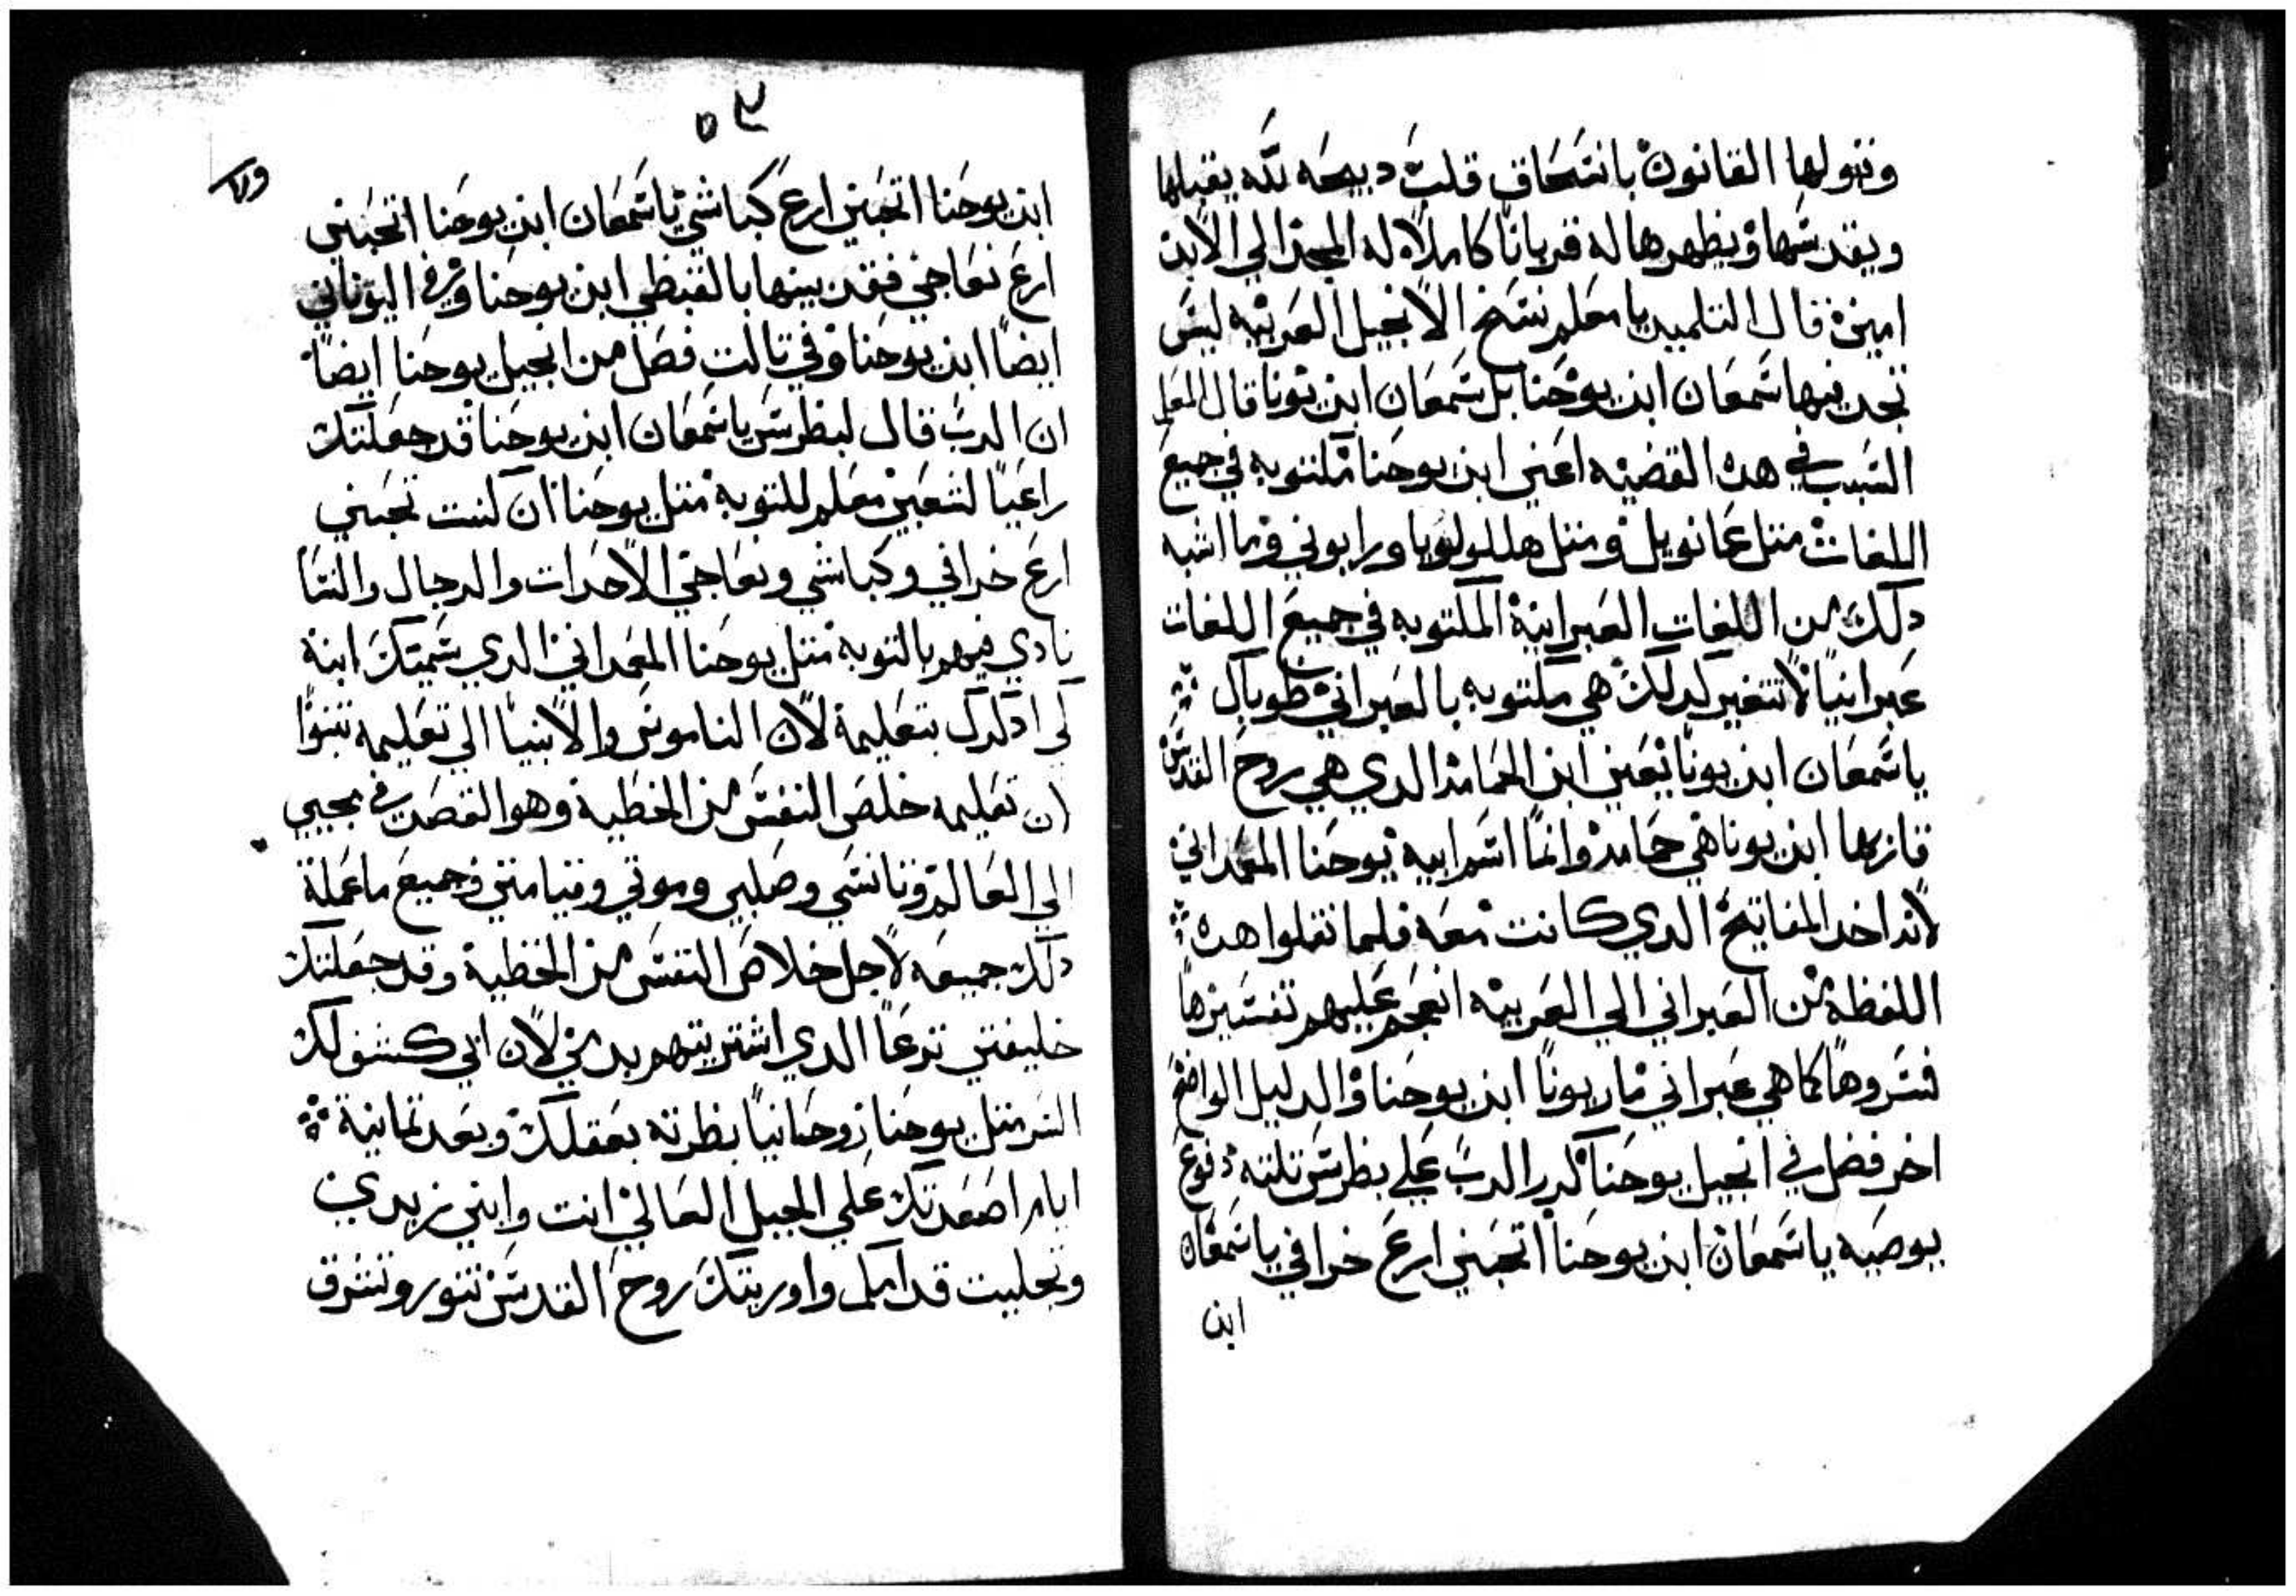 وتنولها القانون بانتحاق قلت دبيحه لله يقبلها
ويقدسها ويظهرها له قربانا كاملا له المجد الي الابد
امين قال التلميد يا معلم نسخ الانجيل العربيه ليس
تجد فيها شمعان ابن يوحنا بل شمعان ابن يونا قال المعلم
السبب في هده القضيه اعني ابن يوحنا مكتوبه في جميع
اللغات متل عمانويل ومتل هللولويا ورابوني وما اشبه
دلك من اللغات العبرانية المكتوبه في جميع اللغات
عبرانيا لا تتغير كدلك هي مكتوبه بالعبراني طوباك
يا شمعان ابن يونا يعني ابن الحمامه الدي هي روح القدس
فان بها ابن يونا هي حمامه وانما اسم ابيه يوحنا المعمداني
لانه اخد المفاتيح الدي كانت معه فلما نقلوا هده
اللفظة من العبراني الي العربيه انعجم عليهم تفسيرها
فسروها كما هي عبراني باريونا ابن يوحنا والدليل الواضح
اخر فصل في انجيل يوحنا كرر الرب علي بطرس تلته دفوع
يوصيه يا شمعان ابن يوحنا اتحبني ارع خرافي يا شمعان
ابن
٥٣
ابن يوحنا اتحبني ارع كباشي يا شمعان ابن يوحنا اتحبني
ارع نعاجي فقد بينها بالقبطي ابن يوحنا وفي اليوناني
ايضا ابن يوحنا وفي تالت فصل من انجيل يوحنا ايضا
ان الرب قال لبطرس يا شمعان ابن يوحنا قد جعلتك
راعيا لشعبي معلم للتوبة متل يوحنا ان كنت تحبني
ارع خرافي وكباشي ونعاجي الاحدات والرجال والنسا
نادي فيهم بالتوبه متل يوحنا المعمداني الدي سميتك ابنه
لكي ادكرك بتعليمه لان الناموس والانبيا الي تعليمه تنبوا
ان تعليمه خلص النفس من الخطية وهو القصد في مجيي
الي العالم وتانسي وصلبي وموتي وقيامتي وجميع ما عملة
دلك جميعه لاجل خلاص النفس من الخطية وقد جعلتك
خليفتي ترعا الدي اشتريتهم بدمي لان ابي كشف لك
السر متل يوحنا روحانيا نظرته بعقلك وبعد تمانية
ايام اصعدتك علي الجبل العالي انت وابني زبدي
وتجليت قدامكم واوريتك روح القدس تنور وتشرق